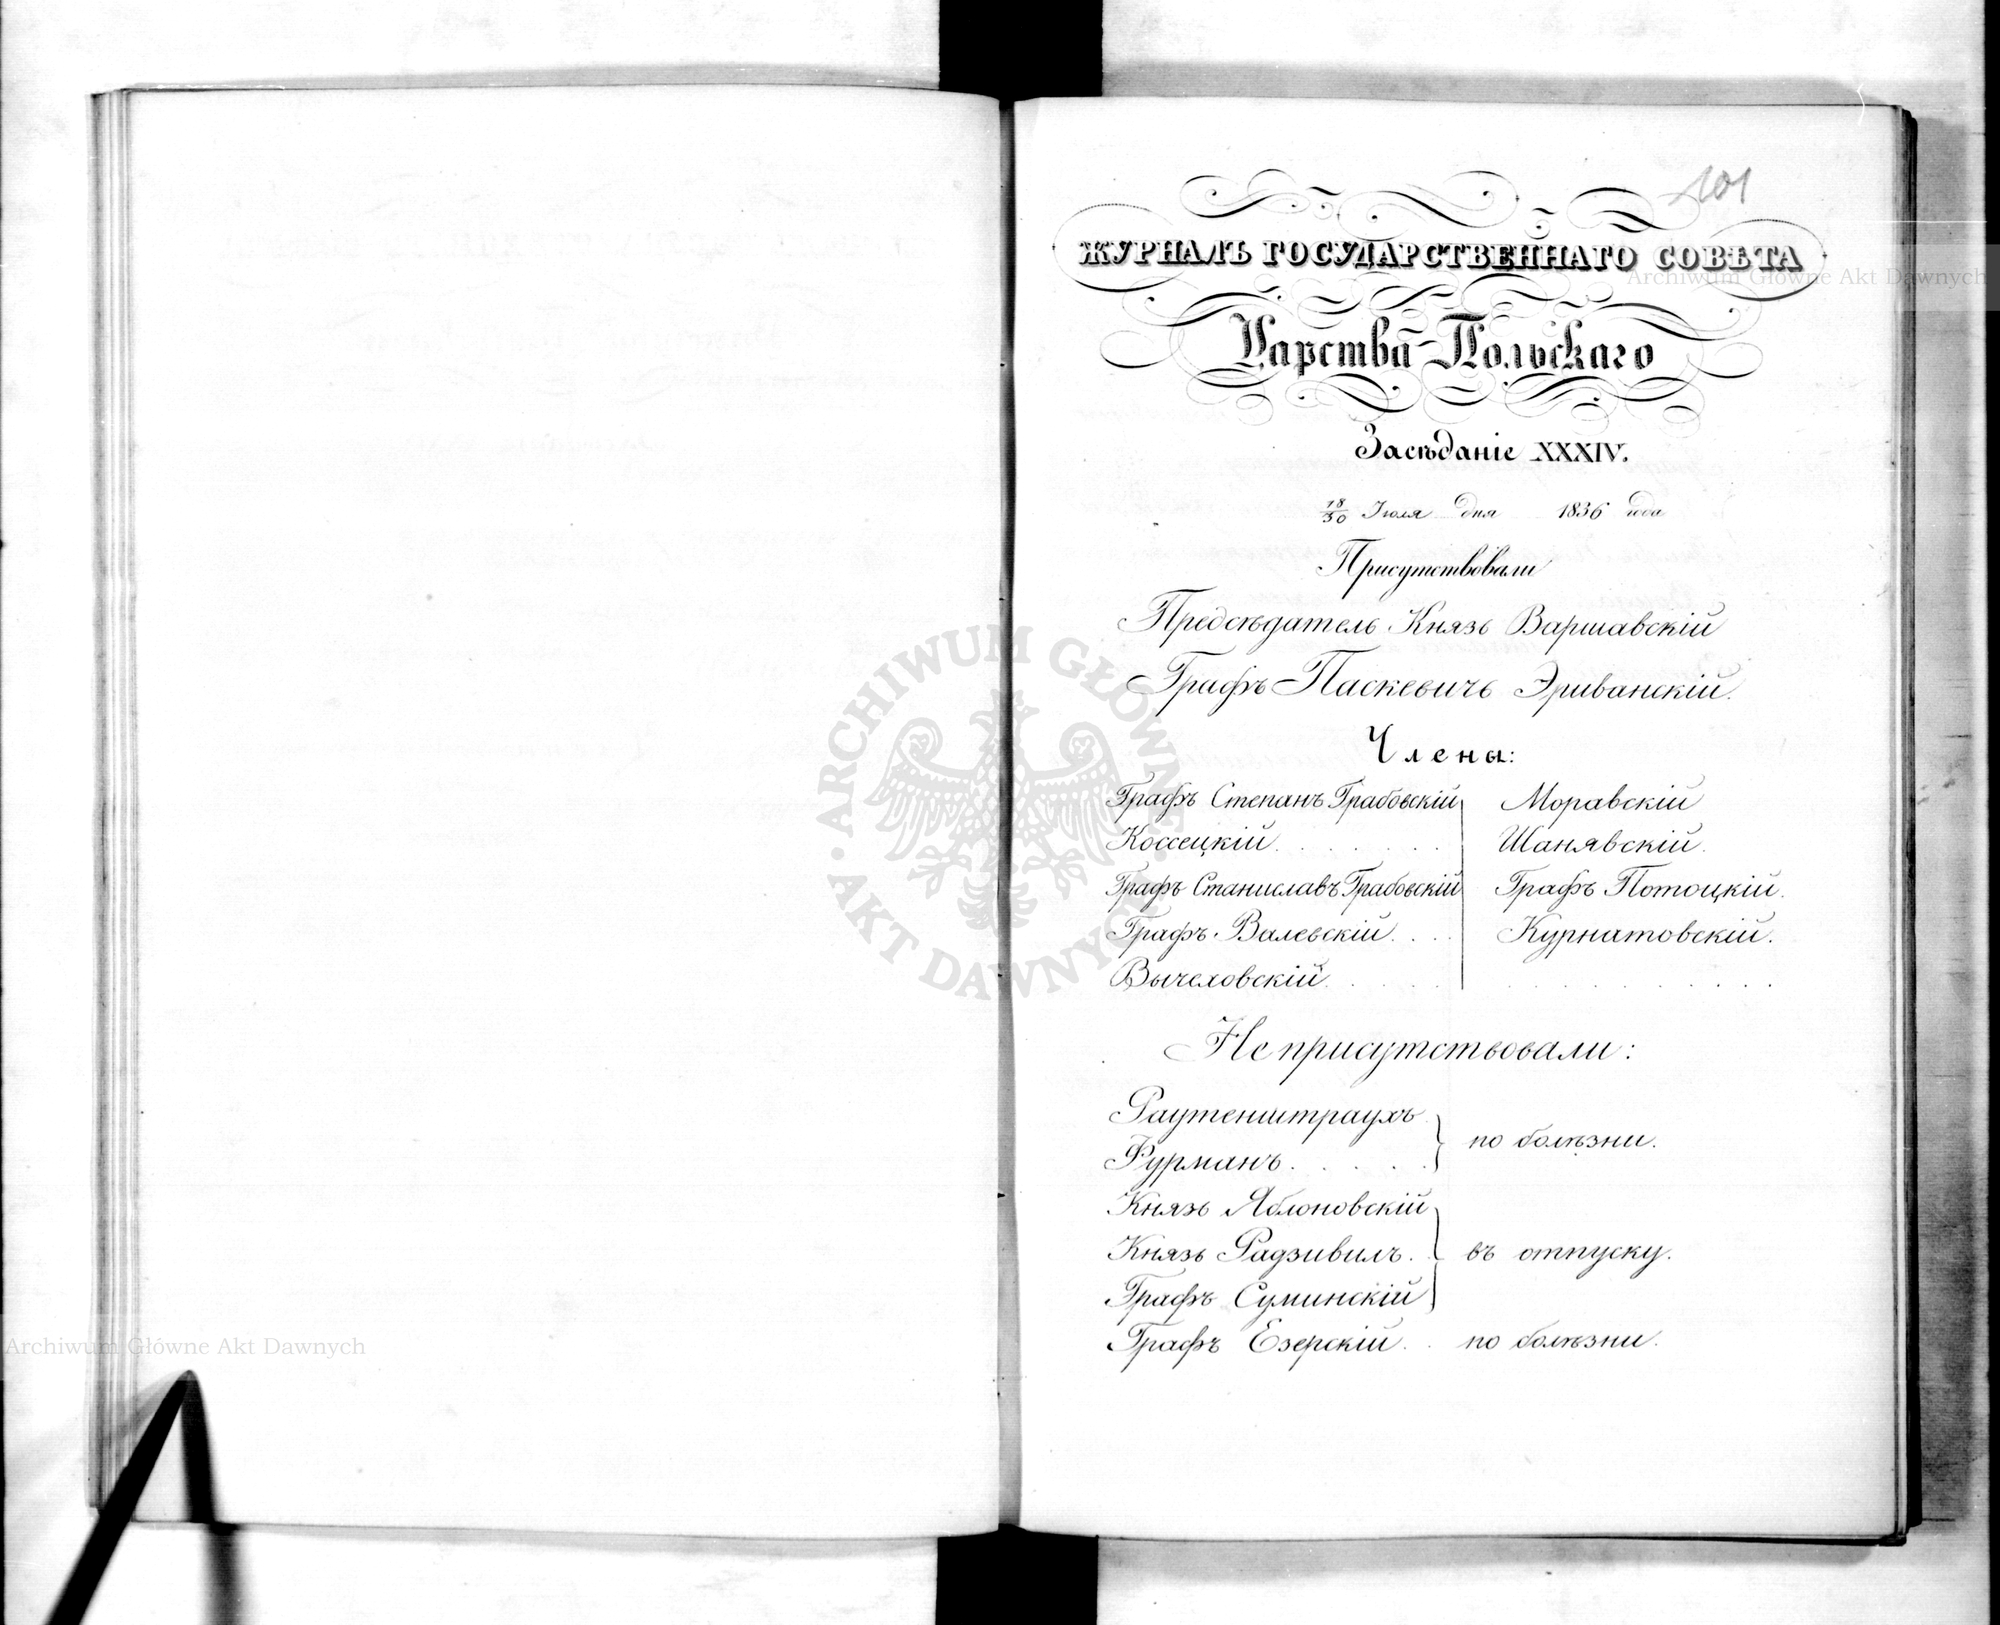 101
ЖУРНАЛЪ ГОСУДАРСТВЕННАГО СОВѢТА
Царства Польскаго
Засѣданіе XXXIV.
18/30 Іюля дня 1836 года
Присутствовали
Предсѣдатель Князь Варшавскій
Графъ Паскевичъ Эриванскій.
Члены:
Графъ Степанъ Грабовскій Моравскій
Коссецкій. Шанявскій.
Графъ Станиславъ Грабовскій Графъ Потоцкій.
Графъ Валевскій. Курнатовскій.
Вычеховскій.
Не присутствовали:
Раутенштраухъ
по болѣзни.
Фурманъ.
Князь Яблоновскій
Князь Радзивилъ. въ отпуску.
Графъ Суминскій
Графъ Езерскій. по болѣзни.
ARCHIWUM GŁÓWNE AKT DAWNYCH
Archiwum Główne Akt Dawnych
Archiwum Główne Akt Dawnych